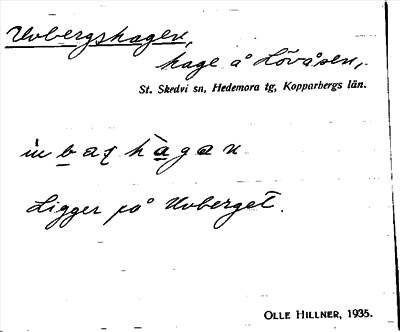 Uvbergshagen,
hage å Lövåsen,
St. Skedvi sn, Hedemora tg, Kopparbergs län.
hagan
Ligger på Uvberget.
OLLE HILLNER, 1935.